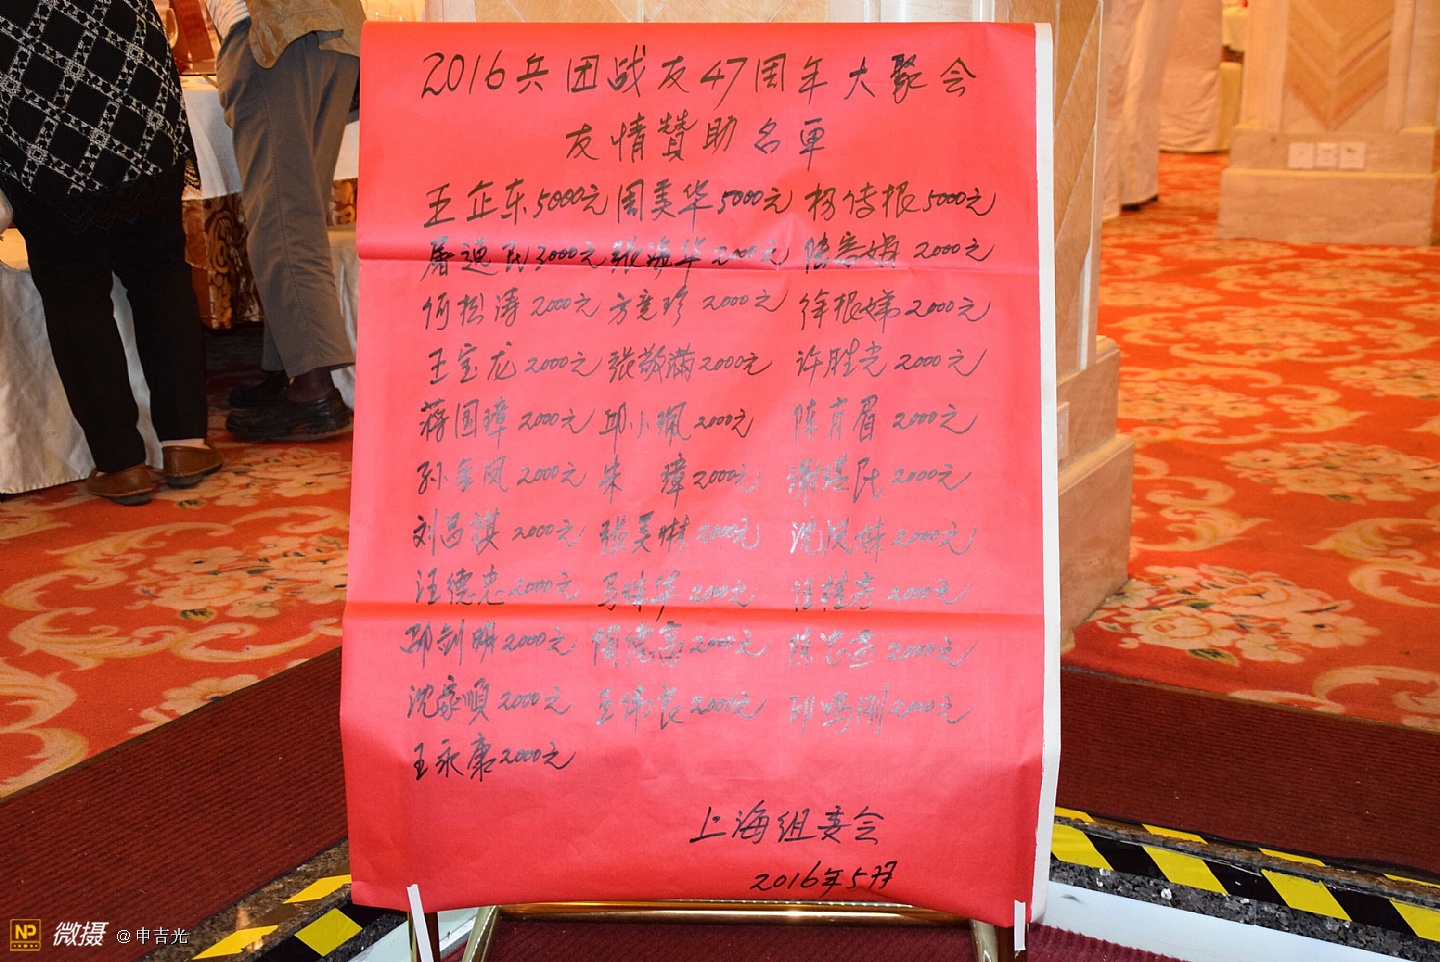 2016兵团战友47周年大聚会
友情赞助名单
王企东5000元 周美华5000元 杨传根5000元
屠逸民3000元 张海华2000元 陆彩娟2000元
何松涛2000元 方竟珍2000元 徐根娣2000元
王宝龙2000元 张敬满2000元 许胜光2000元
蒋国璋2000元 邱小珮2000元 陈育眉2000元
孙金凤2000元 朱 璋2000元 谢琪民2000元
刘昌祺2000元 张美琳2000元 沈凤妹2000元
汪德忠2000元 马珠华2000元 汪桂秀2000元
邵剑明2000元 德高2000元 陈忠2000元
沈家顺2000元 王伟良2000元 邱鸣刚2000元
王永康2000元
上海组委会
2016年5月
NP 微摄 @申吉光